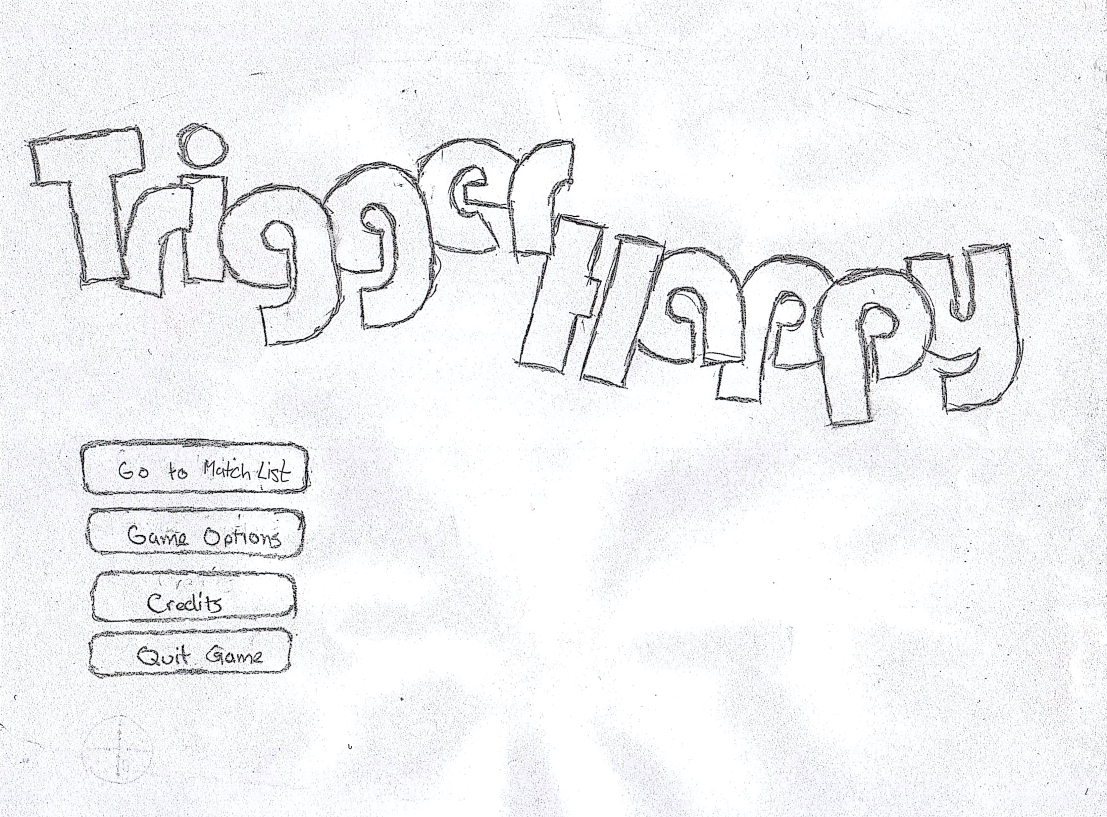 Trigger
Happy
Go to Match List
Game Options
Credits
Quit Game